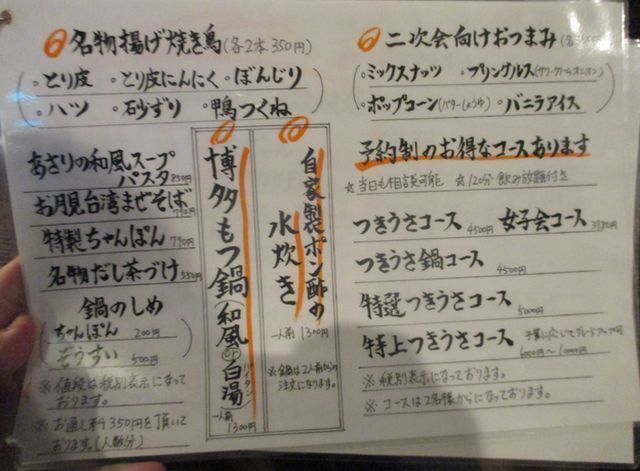 名物揚げ焼き鳥(各2本350円)
・とり皮 ・とり皮にんにく ・ぼんじり
・ハツ ・石少ずり ・鴨つくね
あさりの和風スープ
パスタ 850円
お月見台湾まぜそば
790円
特製ちゃんぽん 790円
名物だし茶づけ 550円
鍋のしめ
ちゃんぽん 200円
ぞうすい 500円
※価格は税別表示になって
おります。
※お通し料350円を頂いて
おります。(人数分)
自家製ポン酢の
水炊き
一人前1300円
※全鍋は2人前からの
注文になります。
博多もつ鍋(和風or白湯)
パイタン
一人前
1300円
二次会向けおつまみ
・ミックスナッツ ・プリングルス(サワークリームオニオン)
・ポップコーン(バターしょうゆ) ・バニラアイス
予約制のお得なコースあります
☆当日も相談可能 ☆120分飲み放題付き
つきうさコース 4500円 女子会コース 3980円
つきうさ鍋コース
4500円
特選つきうさコース
5000円
特上つきうさコース 予算に応じてグレードアップ可
6000円〜10000円
※税別表示になっております。
※コースは2名様からになっております。